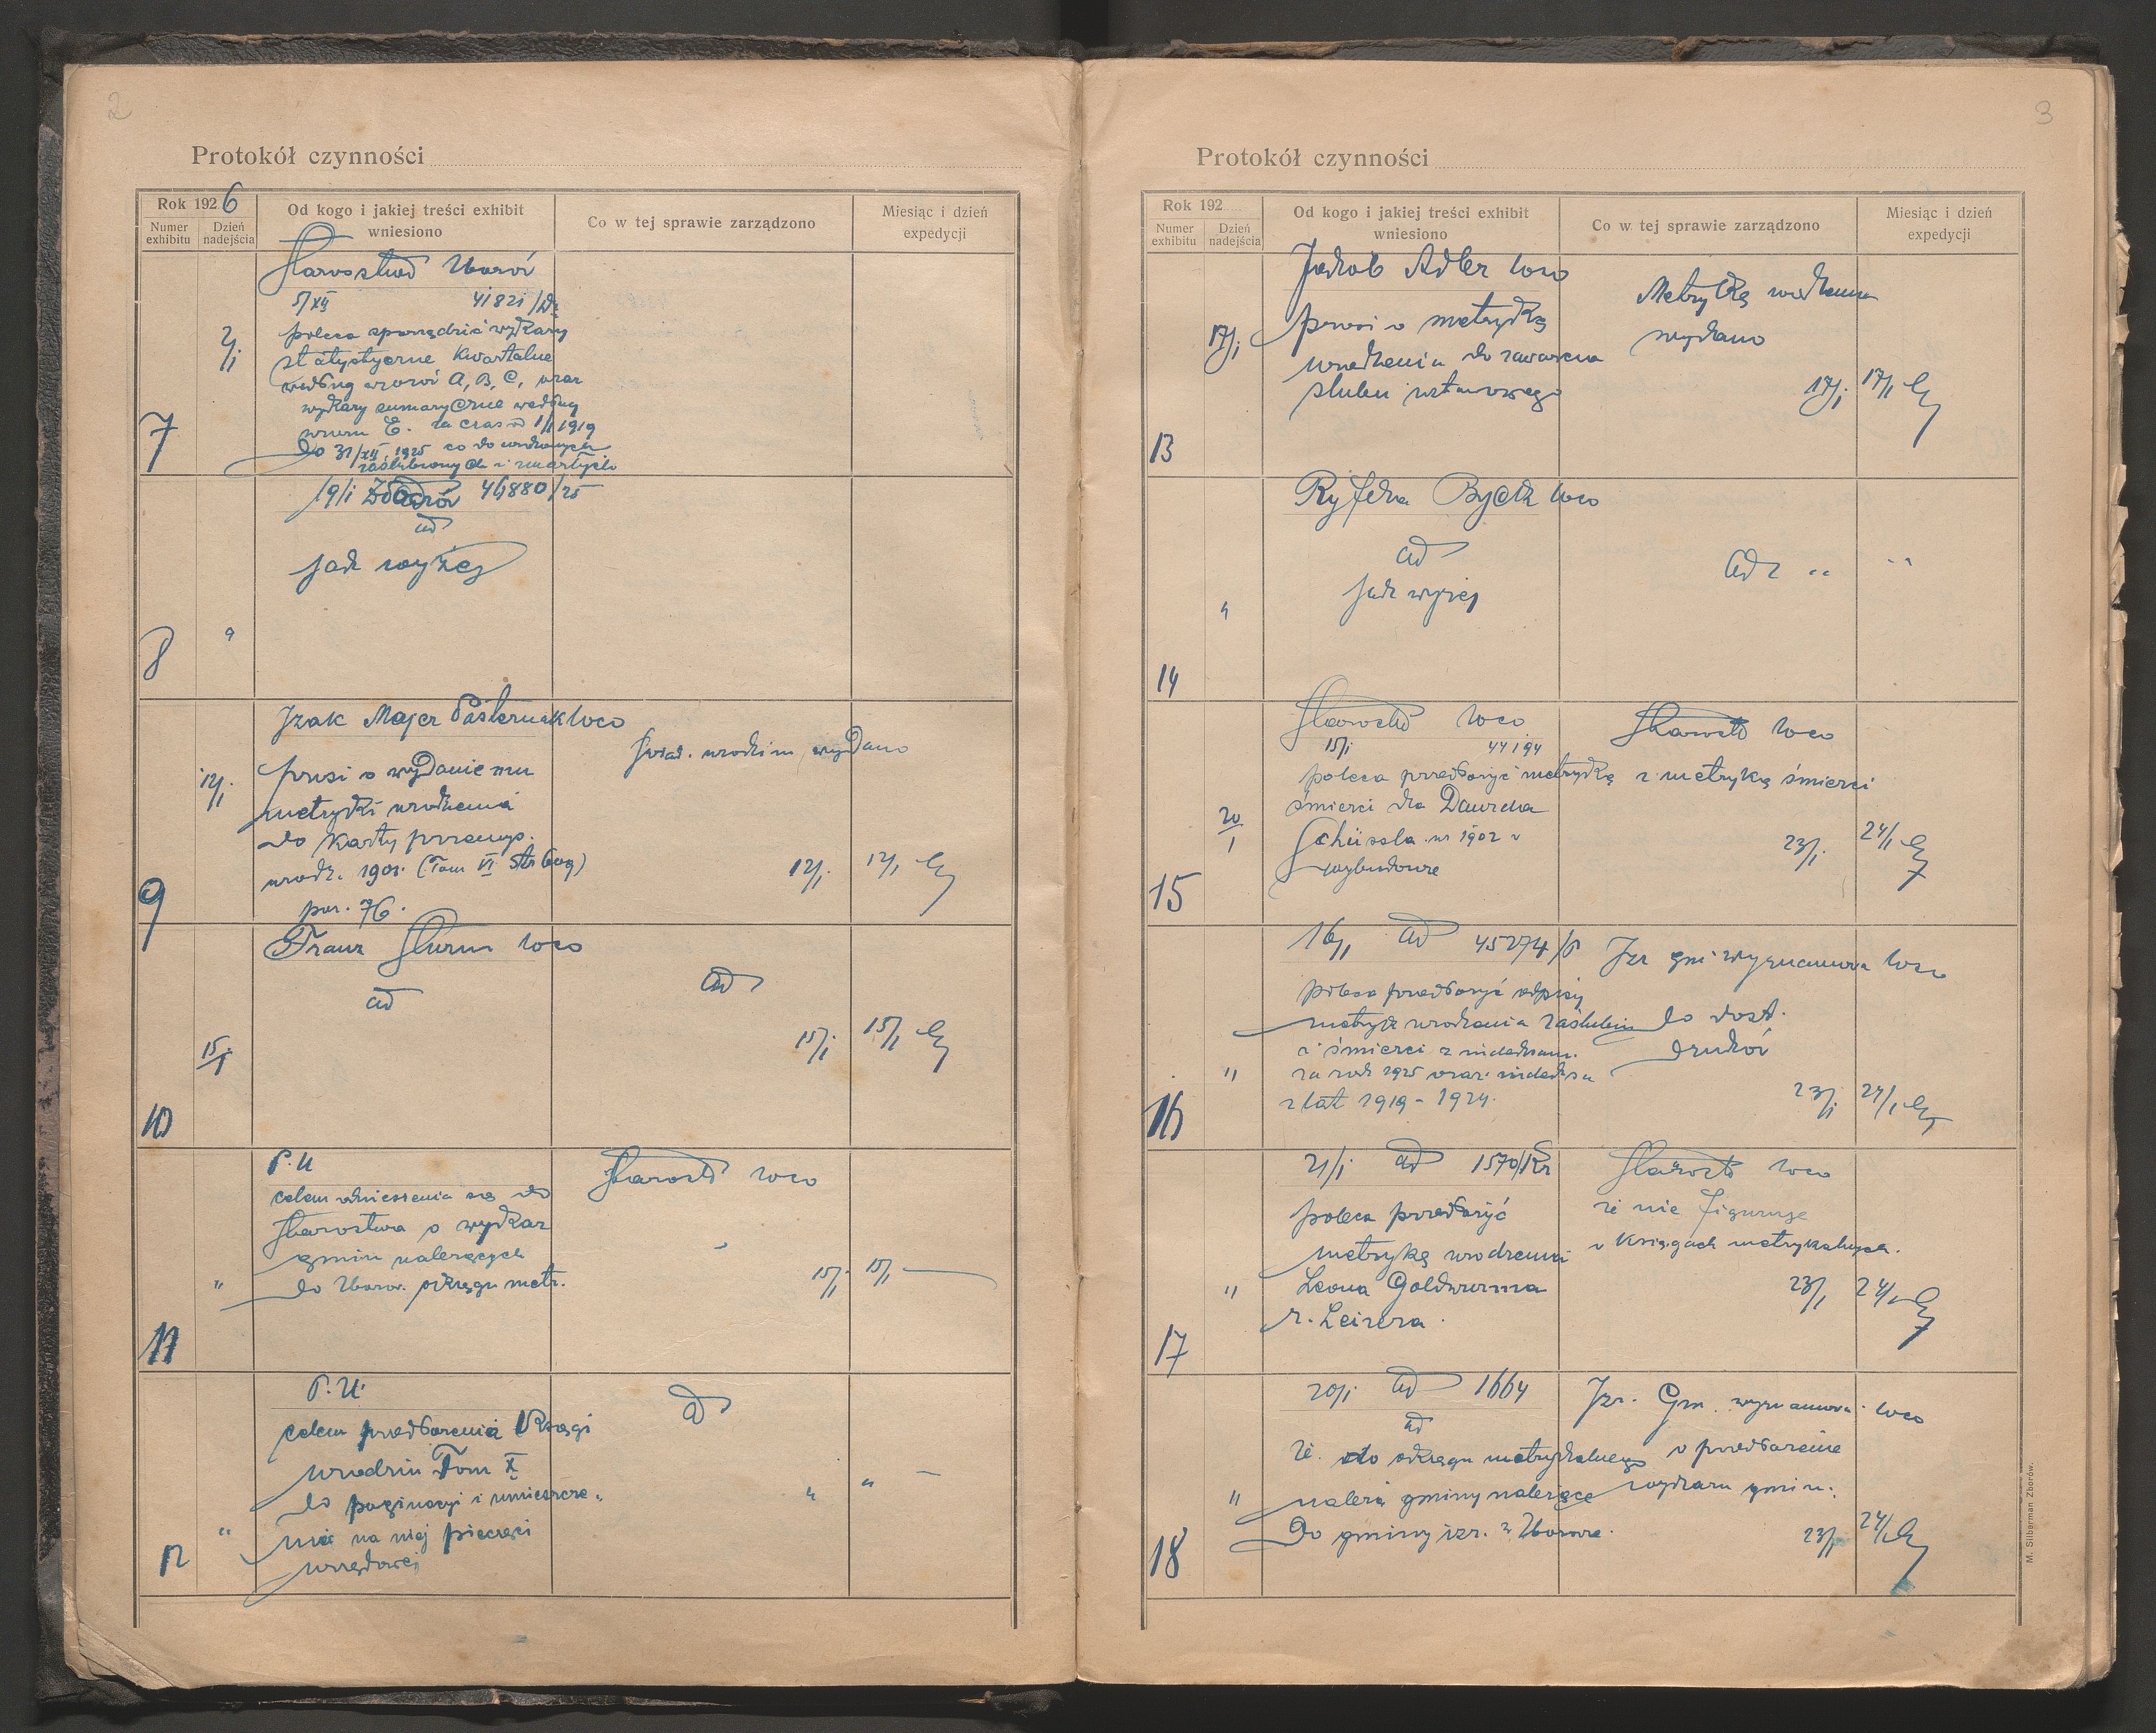 2
Protokół czynności
Rok 1926
Numer exhibitu
Dzień nadejścia
Od kogo i jakiej treści exhibit wniesiono
Co w tej sprawie zarządzono
Miesiąc i dzień expedycji
7
Starostwo Zborów
5/XII 41821
poleca sporządzić wykazy
statystyczne kwartalne
według wzorów A, B, C, oraz
wykazy sumaryczne według
wzoru E. za czas od 1/I 1919
do 31/XII 1925 co do urodzonych
zaślubionych i zmarłych
8
"
19/I Zborów 46880/25
ad
jak wyżej
9
12/I
Izak Majer Pasternak loco
prosi o wydanie mu
metryki urodzenia
do karty przemys.
urodz. 1901. (Tom VI str 609)
poz. 76.
świad. urodzin wydano
12/I
12/I
10
15/I
Franz Sturm loco
ad
ad
15/I
15/I
11
"
P. U
celem odniesienia się do
Starostwa o wykaz
gmin należących
do Zborow. okręgu metr.
Starostwo loco
15/I
15/I
12
"
P. U.
celem przedłożenia Księgi
urodzin Tom X
do paginacyi i umieszcze-
nia na niej pieczęci
urzędowej
ad
"
" —
3
Protokół czynności
Rok 192
Numer exhibitu
Dzień nadejścia
Od kogo i jakiej treści exhibit wniesiono
Co w tej sprawie zarządzono
Miesiąc i dzień expedycji
13
17/I
Jakob Adler loco
prosi o metrykę
urodzenia do zawarcia
ślubu ustawowego
Metrykę urodzenia
wydano
17/I
17/I
14
"
Ryfka Bych loco
ad
jak wyżej
ad " "
15
20/I
Starostwo loco
15/I 44194
poleca przedłożyć metrykę
śmierci dla Dawida
Schüssla ur 1902 w
Starostwo loco
z metryką śmierci
23/I
24/I
16
"
16/I ad 45274/
poleca przedłożyć odpisy
metryk urodzenia zaślubin
i śmierci z indeksam.
za rok 1925 oraz indeksa
z lat 1919 - 1924.
Izr gm wyznaniowa loco
do dost.
druków
23/I
24/I
17
"
21/I ad 1570/Kr
poleca przedłożyć
metrykę urodzenia
Leona Goldwurma
r. Leizera.
Starostwo loco
że nie figuruje
w księgach metrykalnych.
23/I
24/I
18
"
20/I ad 1664
ad
że do okręgu metrykalnego
należą gminy należące
do gminy izr. w Zborowie.
Izr. Gm. wyznaniowa loco
o przedłożenie
wykazu gmin.
23/I
24/I
M. Silberman Zborów.